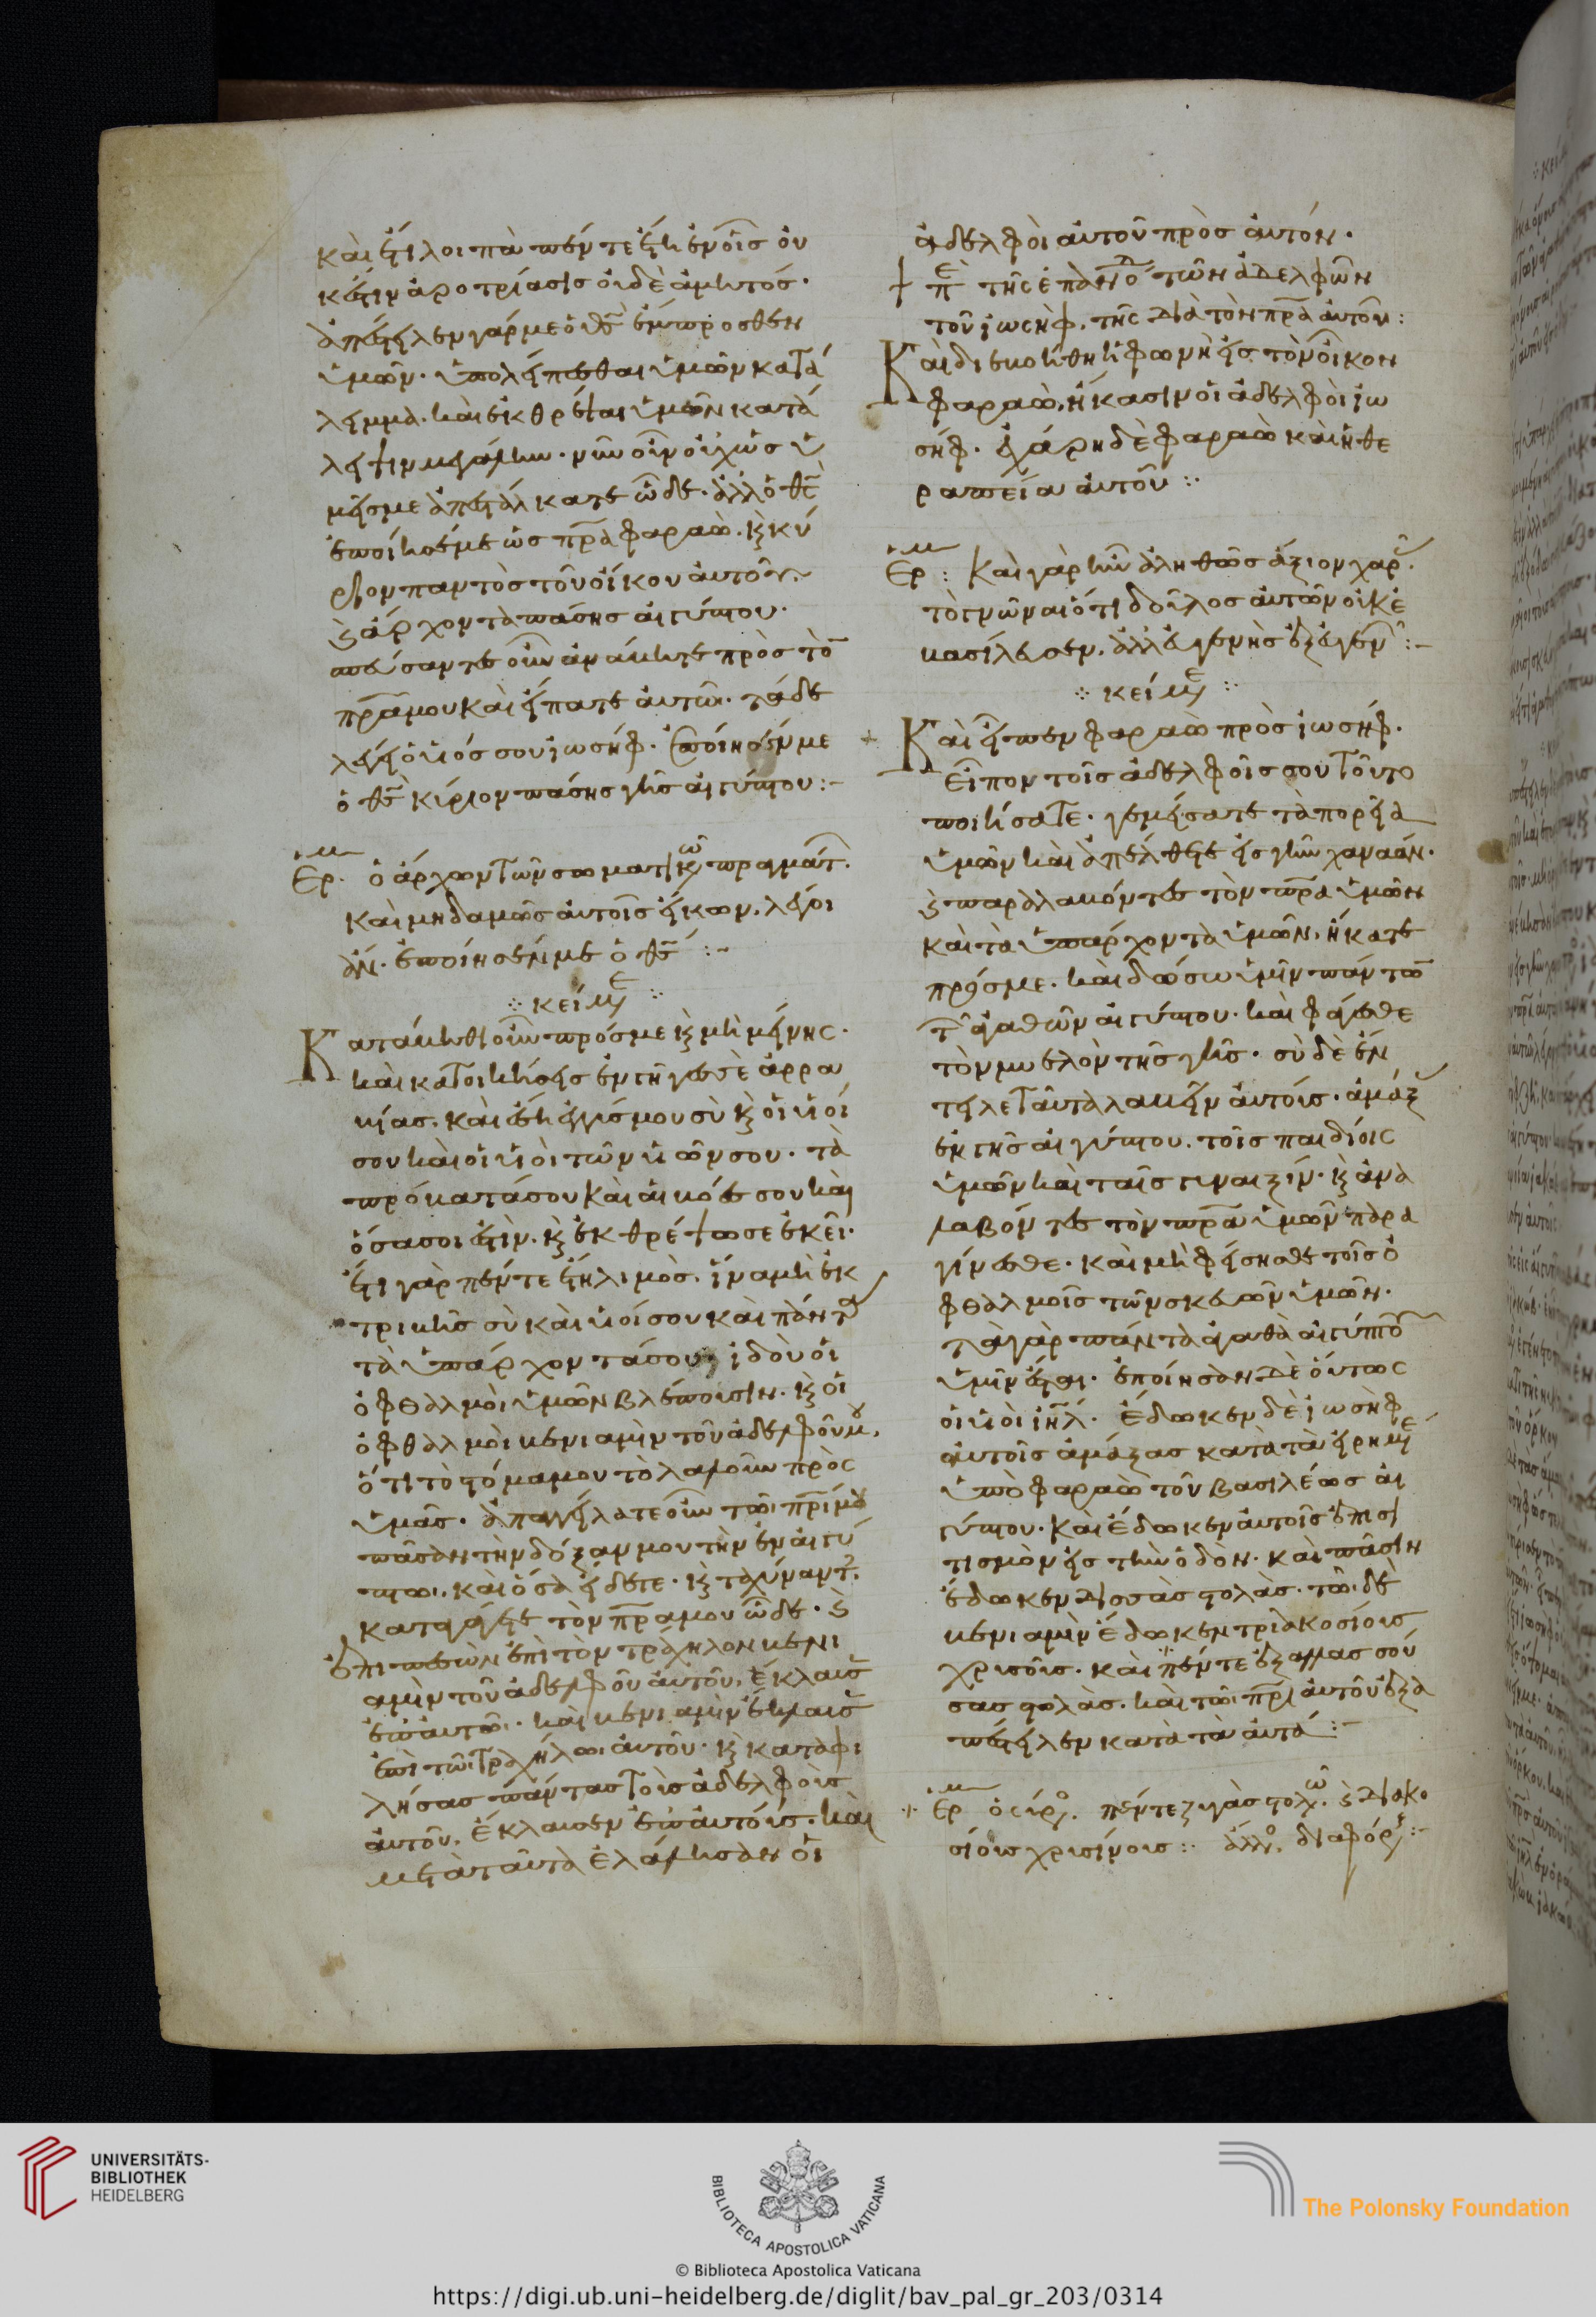 καὶ ἔτι λοιπὰ πέντε ἔτη ἐν οἷς οὐ
κ ἔστιν ἀροτρίασις οὐδὲ ἀμητός·
ἀπέστειλεν γάρ με ὁ θς̅ ἔμπροσθεν
ὑμῶν· ὑπολείπεσθαι ὑμῶν κατά
λειμμα· καὶ ἐκθρέψαι ὑμῶν κατά
λειψιν μεγάλην· νῦν οὖν οὐχ ὡς ὑ
μεῖς με ἀπεστάλκατε ὧδε· ἀλλ ὁ θς̅
ἐποίησέν με ὡς πρ̅α φαραὼ· κ κύ
ριον παντὸς τοῦ οἴκου αὐτοῦ·
κ ἄρχοντα πάσης αἰγύπτου·
σπεύσαντες οὖν ἀνάβητε πρὸς τὸ
πρ̅α μου καὶ εἴπατε αὐτῶ· τάδε
λέγει ὁ υἱός σου ἰωσήφ· ἐποίησέν με
ὁ θς̅ κύριον πάσης γῆς αἰγύπτου:-
Ερμ. ὁ ἄρχων τῶν σωματικῶ πραγμάτ.
καὶ μηδαμῶς αὐτοῖς εἴκων. λέγοι
ἄν. ἐποίησέν με ὁ θς̅ :~
κείμε
Κατάβηθι οὖν πρός με κ μὴ μείνης·
καὶ κατοικήσεις ἐν γῆ γεσὲ ἀρρα
βίας. καὶ ἔση ἐγγύς μου σὺ κ οἱ υἱοί
σου καὶ οἱ υἱοὶ τῶν υἱῶν σου· τὰ
πρόβατά σου καὶ αἱ βόες σου καὶ
ὅσα σοι ἐστὶν. κ ἐκθρέψω σε ἐκεῖ·
ἔτι γὰρ πέντε ἔτη λιμὸς. ἵνα μὴ ἐκ
τριβῆς σὺ καὶ υἱοί σου καὶ πάντα
τὰ ὑπάρχοντά σου· ἰδοὺ οἱ
ὀφθαλμοὶ ὑμῶν βλέπουσιν. κ οἱ
ὀφθαλμοὶ βενιαμὶν τοῦ ἀδελφοῦ μου,
ὅτι τὸ στόμα μου τὸ λαλοῦν πρὸς
ὑμᾶς. ἀπαγγείλατε οὖν τῶ πρ̅ί μου
πᾶσαν τὴν δόξαν μου τὴν ἐν αἰγύ
πτω. καὶ ὅσα εἴδετε. κ ταχύναντ.
καταγάγετε τὸν πρ̅α μου ὧδε. κ
ἐπιπεσὼν ἐπὶ τὸν τράχηλον βενι
αμὶν τοῦ ἀδελφοῦ αὐτοῦ, ἔκλαυς
ἐπ αὐτῶ. καὶ βενιαμὶν ἔκλαυς
ἐπὶ τῶ τραχήλω αὐτοῦ. κ καταφι
λήσας πάντας τοὺς ἀδελφοὺς
αὐτοῦ, ἔκλαυσεν ἐπ αὐτοῖς. καὶ
μετὰ ταῦτα ἐλάλησαν οἱ
ἀδελφοὶ αὐτοῦ πρὸς αὐτόν.
τῆς ἐπανόδ τῶν ἀδελφῶν
τοῦ ἰωσὴφ. τῆς διὰ τὸν πρ̅α αὐτοῦ:
Καὶ διεβοήθη ἡ φωνὴ εἰς τὸν οἶκον
φαραὼ, ἥκασιν οἱ ἀδελφοὶ ἰω
σήφ. ἐχάρη δὲ φαραὼ καὶ ἡ θε
ραπεία αὐτοῦ :·
Ερμ: Καὶ γὰρ ἦν ἀληθῶς ἄξιον χαρ.
τὸ γνῶναι ὅτι δοῦλος αὐτῶν οὐκ ἐ
βασίλευσεν, ἀλλ εὐγενὴς ἐξ εὐγεν :-
κείμε
Καὶ εἶπεν φαραὼ πρὸς ἰωσήφ.
εἶπον τοῖς ἀδελφοῖς σου τοῦτο
ποιήσατε. γεμίσατε τὰ πορεῖα
ὑμῶν καὶ ἀπέλθετε εἰς γῆν χαναάν.
κ παραλαβόντες τὸν πρ̅α ὑμῶν
καὶ τὰ ὑπάρχοντα ὑμῶν, ἥκατε
πρός με. καὶ δώσω ὑμῖν πάντω
τ ἀγαθῶν αἰγύπτου. καὶ φάγεσθε
τὸν μυελὸν τῆς γῆς. σὺ δὲ ἔν
τειλε ταῦτα λαβεῖν αὐτοῖς. ἁμάξ
ἐκ γῆς αἰγύπτου. τοῖς παιδίοις
ὑμῶν καὶ ταῖς γυναιξίν. κ ἀνα
λαβόντες τὸν πρ̅α ὑμῶν παρα
γίνεσθε. καὶ μὴ φείσησθε τοῖς ὀ
φθαλμοῖς τῶν σκευῶν ὑμῶν.
τὰ γὰρ πάντα ἀγαθὰ αἰγύπτου
ὑμῖν ἔσται. ἐποίησαν δὲ οὕτως
οἱ υἱοὶ ιη̅λ. ἔδωκεν δὲ ἰωσὴφ
αὐτοῖς ἁμάξας κατὰ τὰ εἰρημέ
ὑπὸ φαραὼ τοῦ βασιλέως αἰ
γύπτου. καὶ ἔδωκεν αὐτοῖς ἐπισι
τισμὸν εἰς τὴν ὁδὸν. καὶ πᾶσιν
ἔδωκεν δισσὰς στολὰς. τῶ δὲ
βενιαμὶν ἔδωκεν τριακοσίους
χρυσοῦς. καὶ πέντε ἐξαλλασσού
σας στολὰς. καὶ τῶ πρ̅ι αὐτοῦ ἐξα
πέστειλεν κατὰ τὰ αὐτά :-
Ερμ ὁ σύρο. πέντε ζυγὰς στολῶ. κ διακο
σίους χρυσίνους :· ἄλλο. διαφόρ :-
UNIVERSITÄTS-
BIBLIOTHEK
HEIDELBERG
BIBLIOTECA APOSTOLICA VATICANA
The Polonsky Foundation
© Biblioteca Apostolica Vaticana
https://digi.ub.uni-heidelberg.de/diglit/bav_pal_gr_203/0314